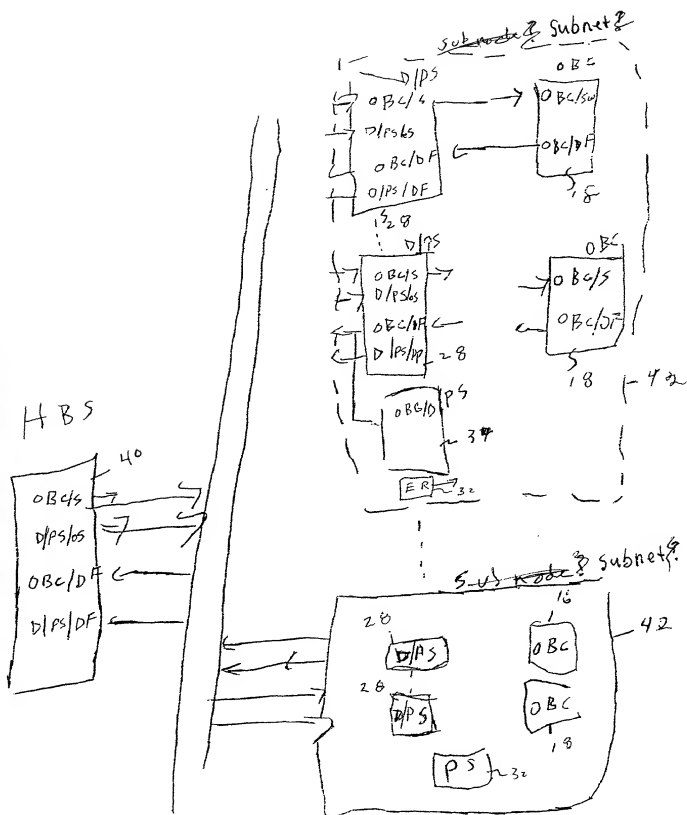 subnode? subnet?
D/PS
OBC
OBC/S
D/PS/OS
OBC/DF
D/PS/DF
28
OBC/SW
OBC/DF
18
D/PS
OBC/S
D/PS/OS
OBC/DF
28
OBC
OBC/S
OBC/DF
18
42
PS
OBC/D
ER
32
HBS
40
OBC/S
D/PS/OS
OBC/DF
D/PS/DF
subnode? subnet?
28
D/PS
28
D/PS
OBC
OBC
18
PS
32
42